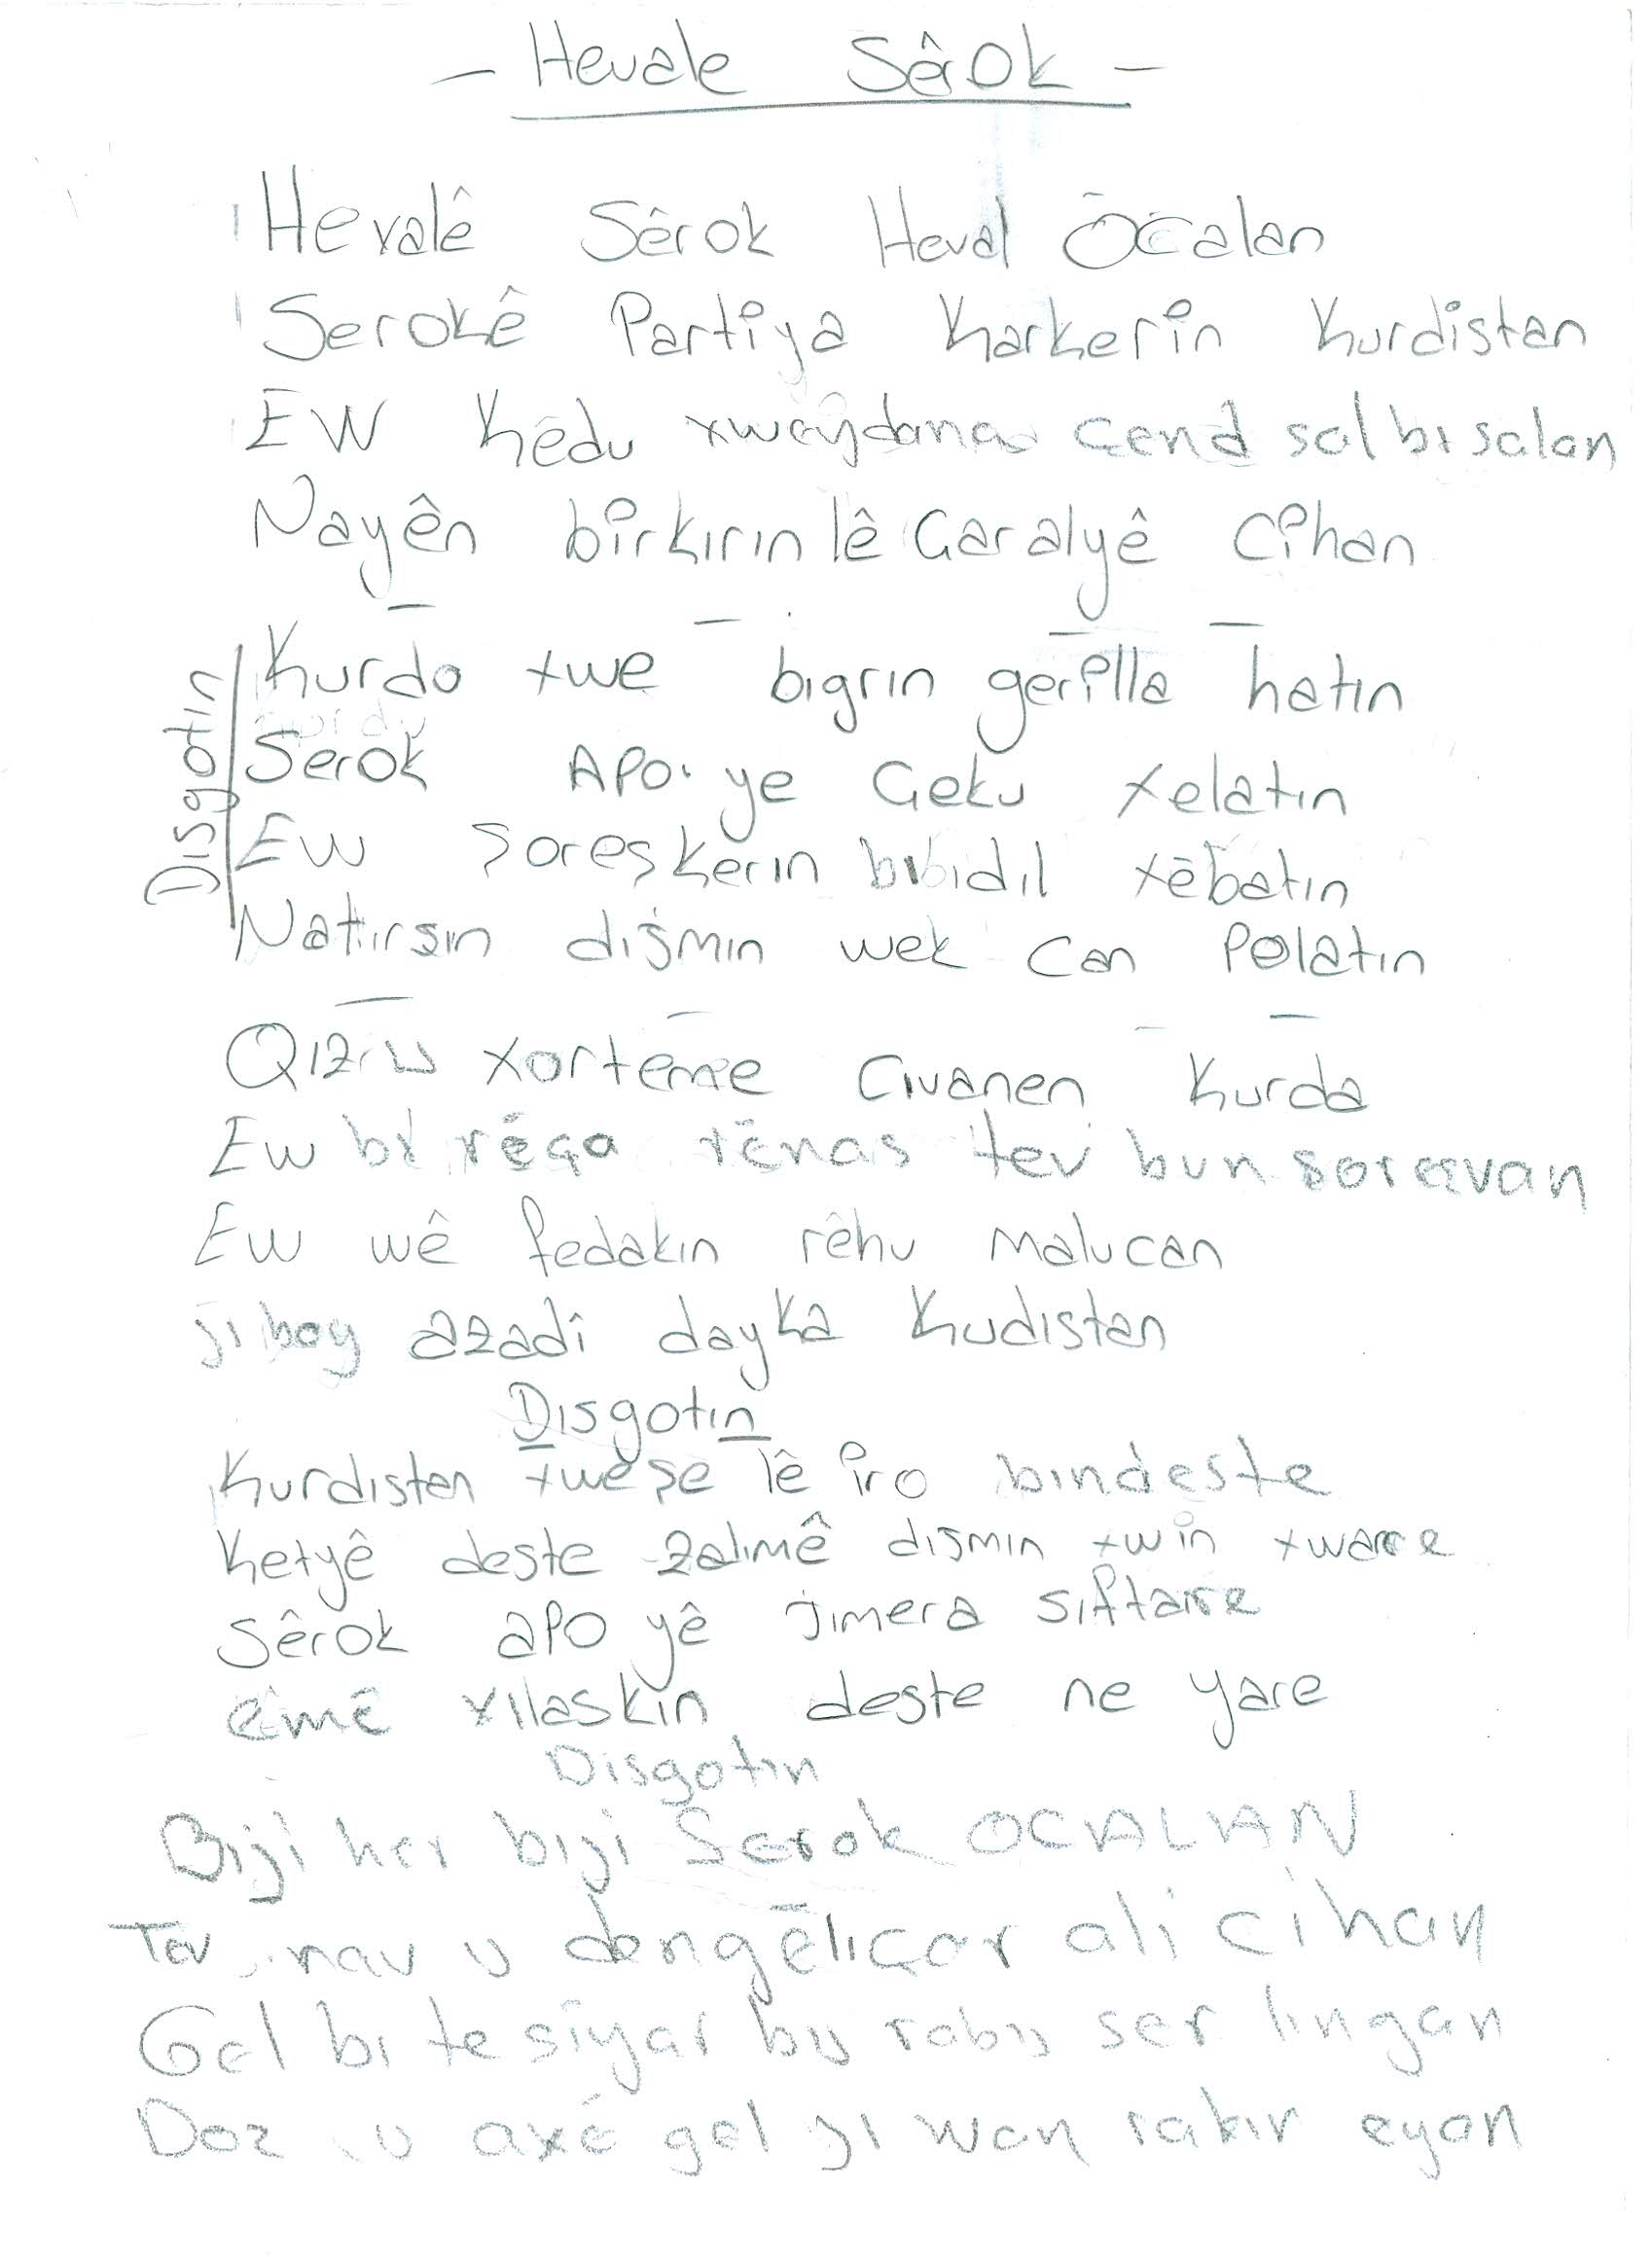 - Hevale Sêrok -
Hevalê Sêrok Heval Öcalan
Serokê Partîya Karkerîn Kurdistan
EW Kêdu xwêydana çend sal bı salan
Nayên bîrkırın lê Çaralyê Cîhan
Disgotın
Kurdo xwe bıgrın gerîlla hatın
Serok APO ye Çeku xelatın
EW şoreşkerın bıdıl xêbatın
Natırsın dışmın wek Can Polatın
Qız u xorteme Cıvanen Kurda
Ew bı rêça rênas tev bun soreşvan
EW wê fedakın rêhu Malucan
jı boy azadî dayka Kudıstan
Dısgotın
Kurdıstan xweşe lê îro bındeste
Ketyê deste zalımê dışmın xwîn xware
Sêrok apo yê jımera sıftare
emê xılaskın deste ne yare
Disgotın
Bıji her bıji Serok OCALAN
Tev nav u dengêlıçar ali cihan
Gel bı te sîyar bu rabu ser lıngan
Doz u axê gel jı wan rakır eyan